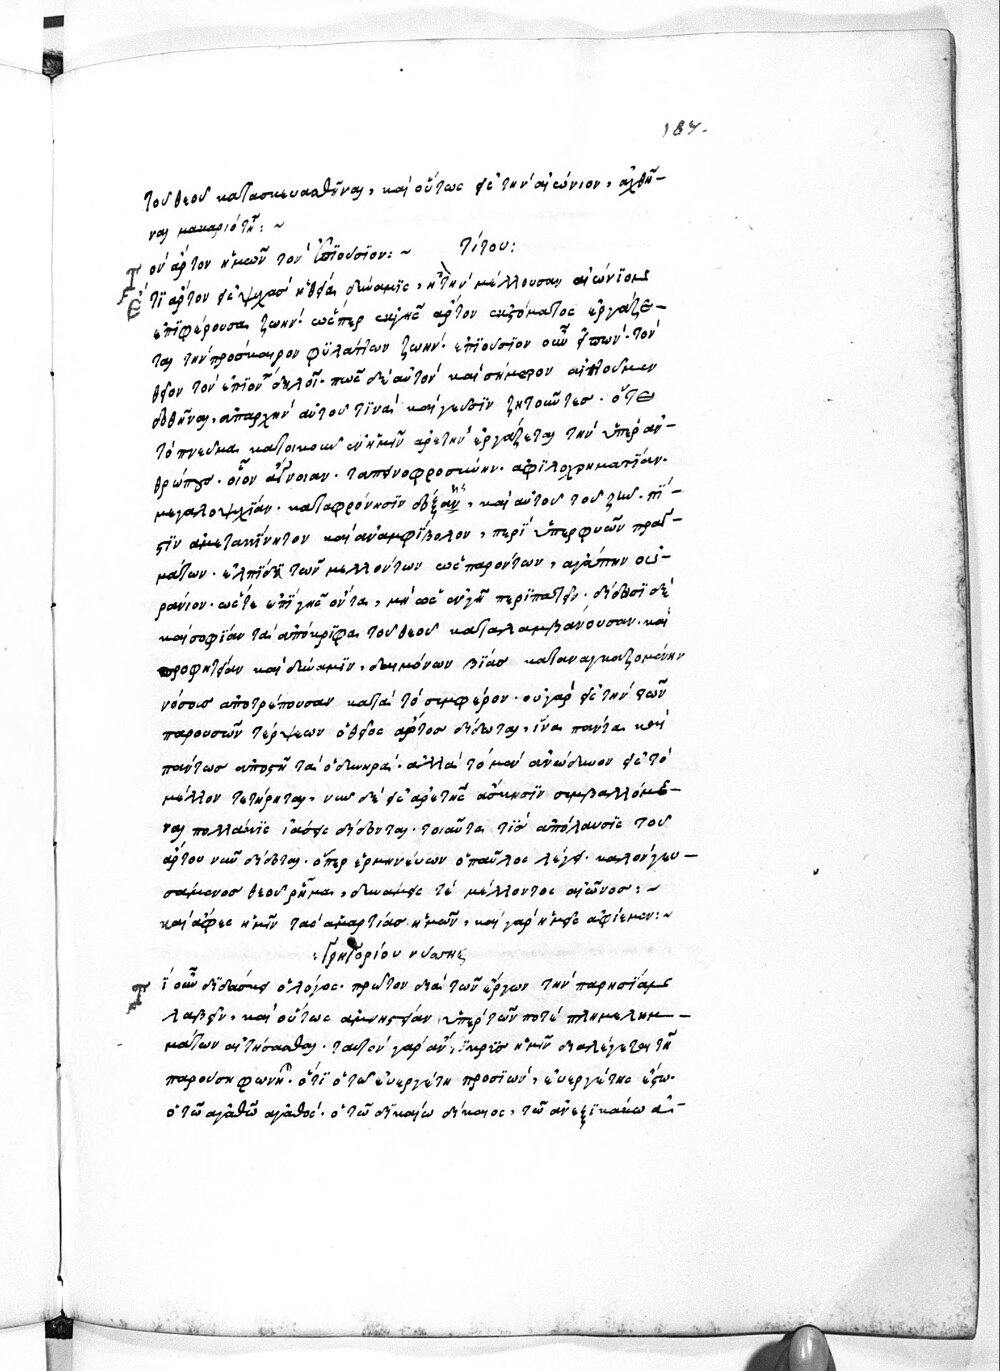 187.
τοῦ θεοῦ κατασκευασθῆναι, καὶ οὕτως εἰς τὴν αἰώνιον, ἀχθῆ-
ναι μακαριότητα: ~
Τὸν ἄρτον ἡμῶν τὸν ἐπϊούσϊον: ~ Τίτου:
Ἔτϊ ἄρτον εἰς ψυχὰς ἡ θεία δύναμις, ἡ τὴν μέλλουσαν αἰώνϊον
ἐπιφέρουσα ζωήν· ὥσπερ ἐκ γῆς ἄρτον σώματος ἐργάζε-
ται τὴν πρόσκαιρον φϋλάττων ζωήν· ἐπϊούσϊον οὖν εἰπὼν τὸν
θεῖον τὸν ἐπϊόντα δηλοῖ· πῶς δὲ αὐτὸν καὶ σήμερον αἰτοῦμεν
δοθῆναι, ἀπαρχὴν αὐτοῦ τϊνὰ καὶ γεῦσϊν ζητοῦντες· ὅτε
τὸ πνεῦμα κατοικοῦν ἐν ἡμῖν ἀρετὴν ἐργάζεται τὴν ὑπὲρ ἀν-
θρώπους· οἷον ἁγνοιαν· ταπεινοφροσύνην· ἀφϊλοχρηματϊαν·
μεγαλοψυχϊαν· καταφρόνησϊν δόξης, καὶ αὐτοῦ τοῦ ζῆν· πϊ-
στϊν ἀμετακϊνητον καὶ ἀναμφϊβολον, περὶ ὑπερφυῶν πραγ-
μάτων· ἐλπϊδα τῶν μελλόντων ὡς παρόντων, ἀγάπην οὐ-
ράνιον· ὥστε ἐπὶ γῆς ὄντα, μὴ ὡς ἐν γῇ περϊπατεῖν· δίδωσϊ δὲ
καὶ σοφϊαν τὰ ἀπόκρϋφα τοῦ θεοῦ καταλαμβάνουσαν· καὶ
προφητείαν καὶ δύναμϊν, δαιμόνων βϊας καταναγκαζομένην
νόσους ἀποτρέπουσαν κατὰ τὸ συμφέρον· οὐ γὰρ εἰς τὴν τῶν
παρουσῶν τέρψεων ὁ θεῖος ἄρτος δίδοται, ἵνα πάντα καὶ
πάντως ἀποστῇ τὰ ὀδυνηρά· ἀλλὰ τὸ μὲν ἀνώδυνον εἰς τὸ
μέλλον τετήρηται, νῦν δὲ εἰς ἀρετῆς ἄσκησϊν συμβαλλόμε-
ναι πολλάκϊς ἰάσεις δίδονται· τοιαῦτα τϊς ἀπόλαυσϊς τοῦ
ἄρτου νῦν δίδοται· ὅπερ ἑρμηνεύων ὁ παῦλος λέγει· καλὸν γευ-
σάμενος θεοῦ ῥῆμα, δυνάμεις τε μέλλοντος αἰῶνος: ~
καὶ ἄφες ἡμῖν τὰς ἁμαρτίας ἡμῶν, καὶ γὰρ ἡμεῖς ἀφίεμεν: ~
Γρηγορίου νύσσης
Τί οὖν διδάσκει ὁ λόγος· πρῶτον διὰ τῶν ἔργων τὴν παρησίαν
λαβεῖν, καὶ οὕτως ἀμνηστείαν ὑπὲρ τῶν ποτὲ πλημελημ-
μάτων αἰτήσασθαι· ταυτὸν γὰρ ἡμῖν διαλέγεται τῇ
παρούσῃ φωνῇ· ὅτϊ ὁ τῷ εὐεργέτῃ προσϊών, εὐεργέτης ἔστω·
ὁ τῷ ἀγαθῷ ἀγαθός· ὁ τῷ δικαίῳ δίκαιος, τῷ ἀνεξϊκάκῳ ἀ-